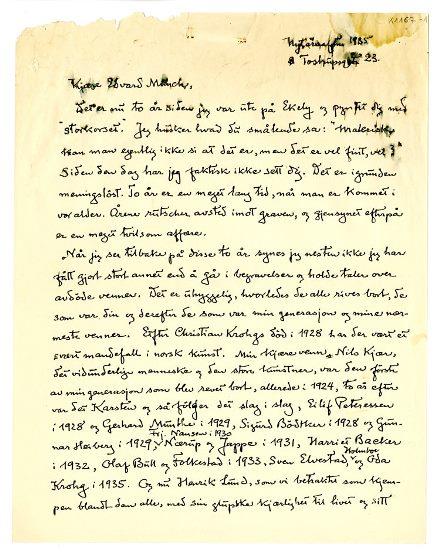 K1167-1
Nyttårsaften 1935
Tostrupsgt 23.
Kjære Edvard Munch,
Det er nu to år siden jeg var ute på Ekely og pyntet dig med
"storkorset." Jeg husker hvad du smålende sa: "Malerisk
kan man egentlig ikke si at det er, men det er vel fint, vel?"
Siden den dag har jeg faktisk ikke sett dig. Det er igrunden
meningsløst. To år er en meget lang tid, når man er kommet i
vor alder. Årene rutscher avsted imot graven, og gjensynet efterpå
er en meget tvilsom affære.
Når jeg ser tilbake på disse to år synes jeg nesten ikke jeg har
fått gjort stort annet end å gå i begravelser og holde taler over
avdøde venner. Det er uhyggelig, hvorledes de alle rives bort, de
som var din og derefter de som var min generasjon og mine nær-
meste venner. Efter Christian Krohgs död i 1928 har det vært et
svært mandefall i norsk kunst. Min kjære venn, Nils Kjær,
det vidunderlige menneske og den store kunstner, var den første
av min generasjon som blev revet bort, allerede i 1924, to år efter
var det Karsten og så følger det slag i slag, Eilif Peterssen
i 1928 og Gerhard Munthe i 1929, Sigurd Bödtker i 1928 og Gun-
Fri. Nansen i 1930
nar Heiberg i 1929, Nærup og Jappe i 1931, Harriet Backer
i 1932, Olaf Bull og Folkestad i 1933, Sven Elvestad, og Oda
Holmboe
Krohg i 1935. Og nu Henrik Lund, som vi betraktet som kjem-
pen blandt dem alle, med sin glupske kjærlighet til livet og sitt